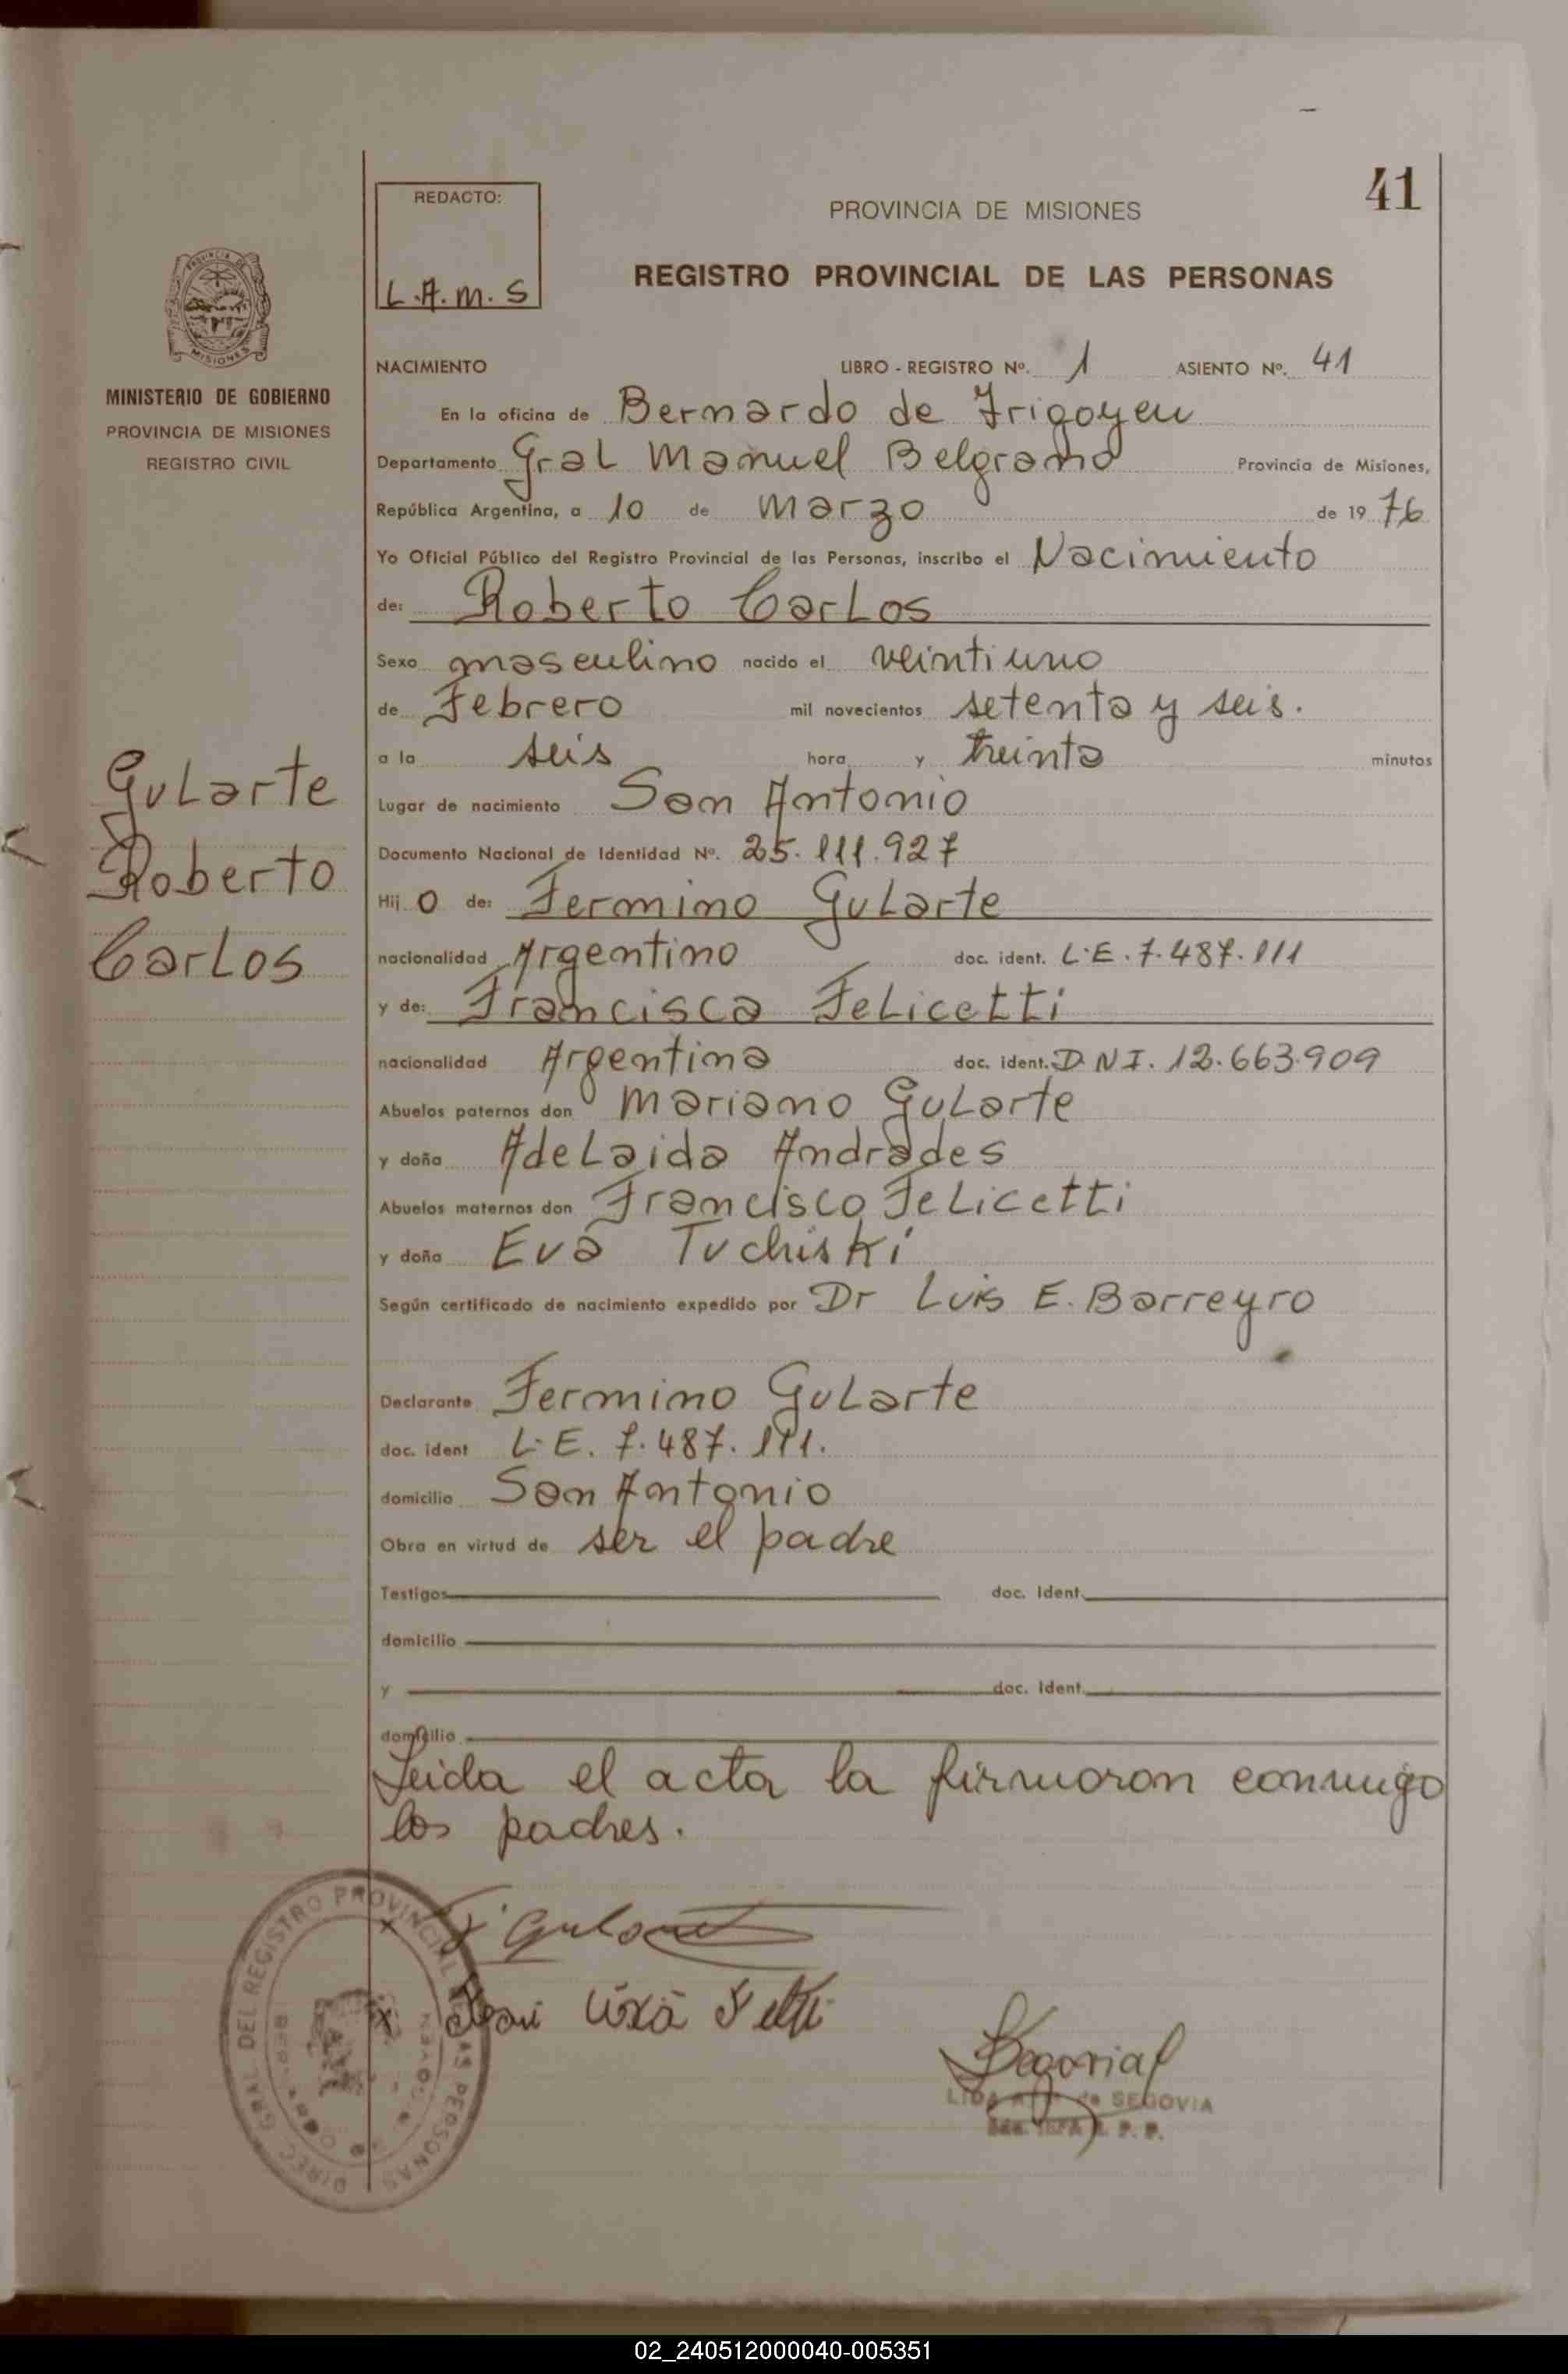 41
REDACTO:
L.A.M.S
PROVINCIA DE MISIONES
REGISTRO PROVINCIAL DE LAS PERSONAS
MISIONES
MINISTERIO DE GOBIERNO
PROVINCIA DE MISIONES
REGISTRO CIVIL
NACIMIENTO LIBRO - REGISTRO Nº. 1 ASIENTO Nº. 41
En la oficina de Bernardo de Irigoyen
Departamento Gral Manuel Belgrano Provincia de Misiones,
República Argentina, a 10 de Marzo de 1976
Yo Oficial Público del Registro Provincial de las Personas, inscribo el Nacimiento
de: Roberto Carlos
Sexo masculino nacido el veintiuno
de Febrero mil novecientos setenta y seis.
a la seis hora y treinta minutos
Lugar de nacimiento San Antonio
Documento Nacional de Identidad Nº. 25.111.927
Hijo de: Fermino Gularte
nacionalidad Argentino doc. ident. L.E. 7.487.111
y de: Francisca Felicetti
nacionalidad Argentina doc. ident. D.N.I. 12.663.909
Abuelos paternos don Mariano Gularte
y doña Adelaida Andrades
Abuelos maternos don Francisco Felicetti
y doña Eva Tuchiski
Según certificado de nacimiento expedido por Dr Luis E. Barreyro
Declarante Fermino Gularte
doc. ident L.E. 7.487.111.
domicilio San Antonio
Obra en virtud de ser el padre
Testigos doc. Ident.
domicilio
y doc. Ident.
domicilio
Leida el acta la firmaron conmigo
los padres.
Gularte
Roberto
Carlos
DIREC. GRAL DEL REGISTRO PROVINCIAL DE LAS PERSONAS
de SEGOVIA
02_240512000040-005351